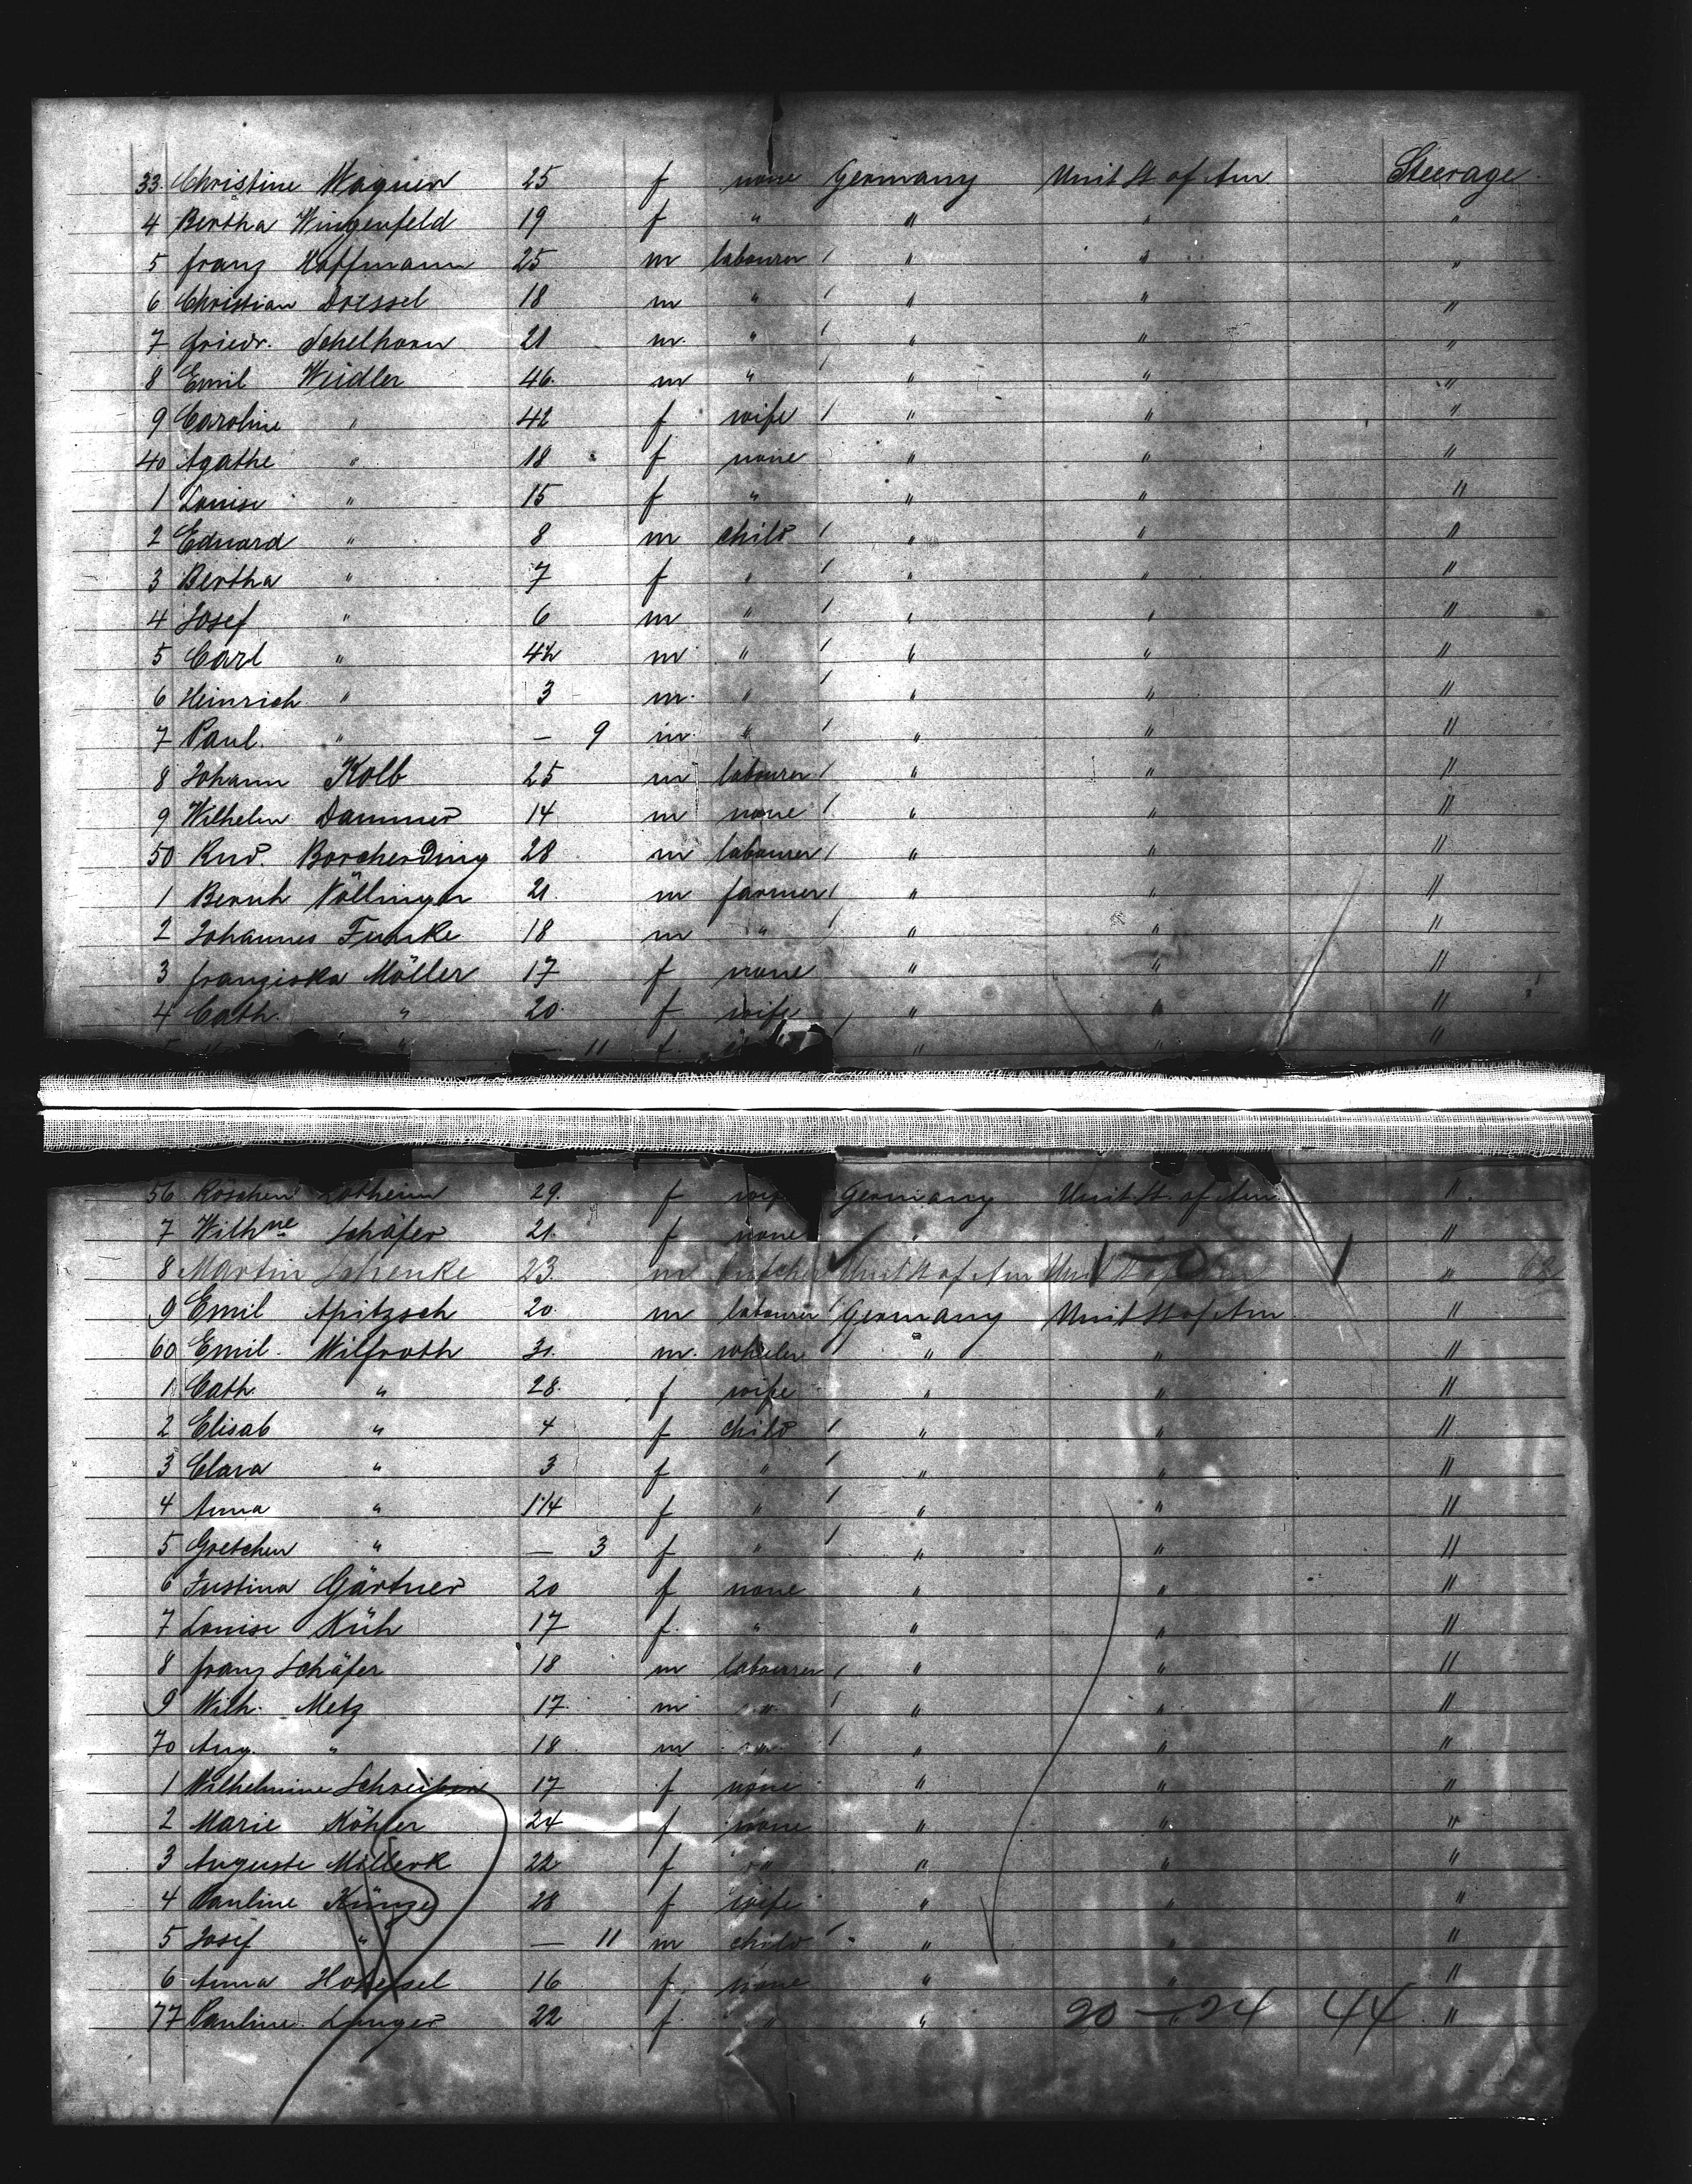 33. Christine Wagner 25 f none Germany Unit St of Am. Steerage.
4 Bertha Wingenfeld 19 f " " " "
5 Franz Hoffmann 25 m labourer / " " "
6 Christian Dressel 18 m " / " " "
7 Friedr. Schelhorn 21 m. " / " " "
8 Emil Weidler 46. m " / " " "
9 Caroline " 42 f wife / " " "
40 Agathe " 18 f none " " "
1 Louise " 15 f " " " "
2 Eduard " 8 m child / " " "
3 Bertha " 7 f " / " " "
4 Josef " 6 m " / " " "
5 Carl " m " / " " "
6 Heinrich " 3 m. " / " " "
7 Paul. " — 9 m. " / " " "
8 Johann Kolb 25 m labourer / " " "
9 Wilhelm Dammer 14 m none / " " "
50 Rud. Borcherding 28 m labourer / " " "
1 Bernh Nöllinger 21. m farmer / " " "
2 Johannes Funke 18 m " / " " "
3 Franziska Möller 17 f none " " "
4 Cath. " 20. f wife / " " "
" — 11 f. " " "
56 Röschen Lotheim 29. f wife Germany Unit. St. of Am. "
7 Wilhne Schäfer 21. f none " "
8 Martin Schenke 23. m butcher Unit St of Am Unit St of Am 1—0 1 "
9 Emil Apitzsch 20. m labourer / Germany Unit St of Am "
60 Emil. Wilfroth 31. m. " " "
1 Cath. " 28. f wife " " "
2 Elisab " 4 f child / " " "
3 Clara " 3 f " / " " "
4 Anna " 1 1/4 f " / " " "
5 Gretchen " — 3 f " / " " "
6 Justina Gärtner 20 f none " " "
7 Louise Küh 17 f. " " " "
8 Franz Schäfer 18 m labourer / " " "
9 Wilh. Metz 17. m " / " " "
70 Aug. " 18 m " / " " "
1 Wilhelmine Schreiber 17 f none " " "
2 Marie Köhler 24 f none " " "
3 Auguste 22 f " " " "
4 Pauline Künze 28 f wife " " "
5 Josef " — 11 m child / " " "
6 Anna 16 f. none " " "
77 Pauline Langer 22 f. " " " "
20 — 24 44